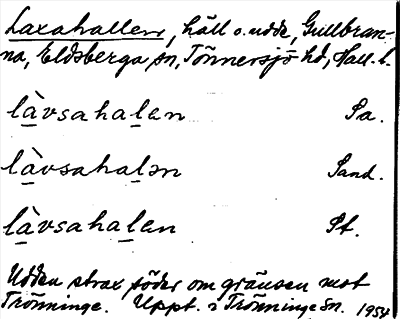 Laxahallen, häll o. udde, Gullbran-
na, Eldsberga sn, Tönnersjö hd, Hall. l.
làvsahalen Pa.
làvsahalən Sand.
làvsahalen St.
Udden strax söder om gränsen mot
Trönninge. Uppt. i Trönninge sn. 1954